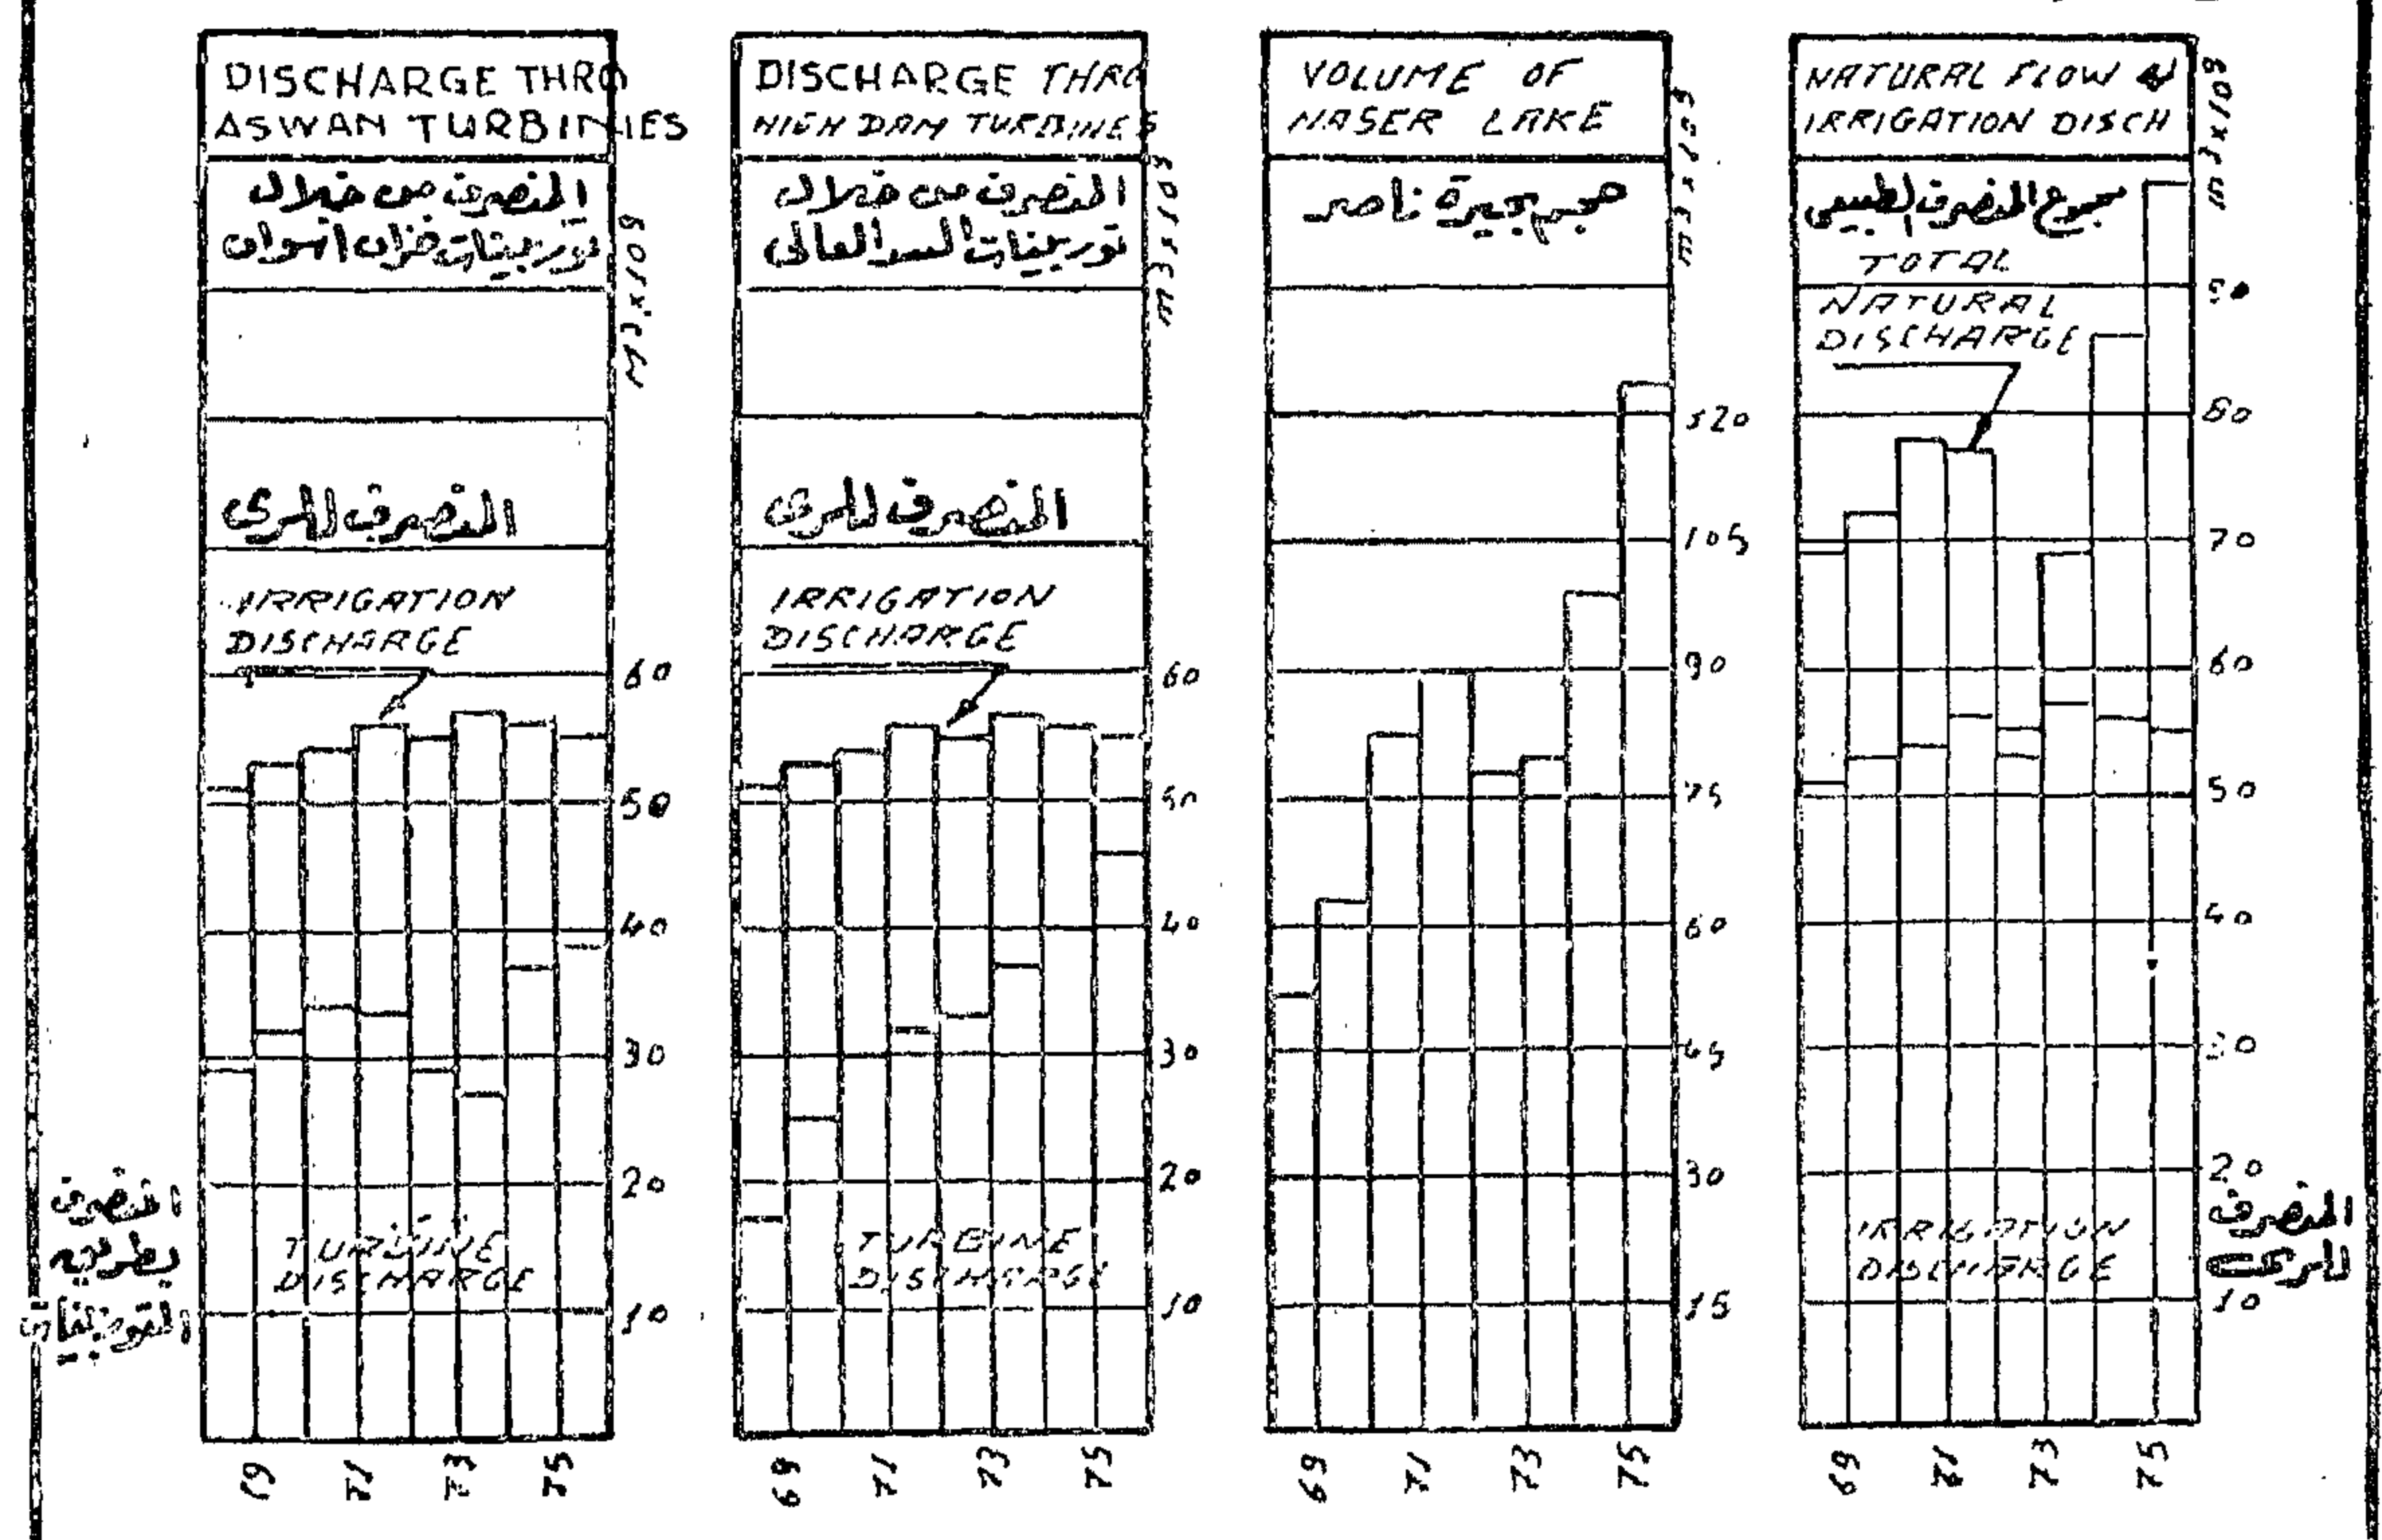 DISCHARGE THRO
ASWAN TURBINES
المنصرف من خلال
توربينات خزان اسوان
M3 x 109
المنصرف للرى
IRRIGATION
DISCHARGE
60
50
40
30
20
10
TURBINE
DISCHARGE
المنصرف
بطريق
التوربينات
69
71
73
75
DISCHARGE THRO
HIGH DAM TURBINES
المنصرف من خلال
توربينات السد العالى
m3 x 109
المنصرف للرى
IRRIGATION
DISCHARGE
60
50
40
30
20
10
TURBINE
DISCHARGE
69
71
73
75
VOLUME OF
NASER LAKE
حجم بحيرة ناصر
m3 x 109
120
105
90
75
60
45
30
15
69
71
73
75
NATURAL FLOW &
IRRIGATION DISCH
m3 x 109
مجموع المنصرف الطبيعى
TOTAL
NATURAL
DISCHARGE
90
80
70
60
50
40
30
20
10
IRRIGATION
DISCHARGE
المنصرف
للرى
69
71
73
75